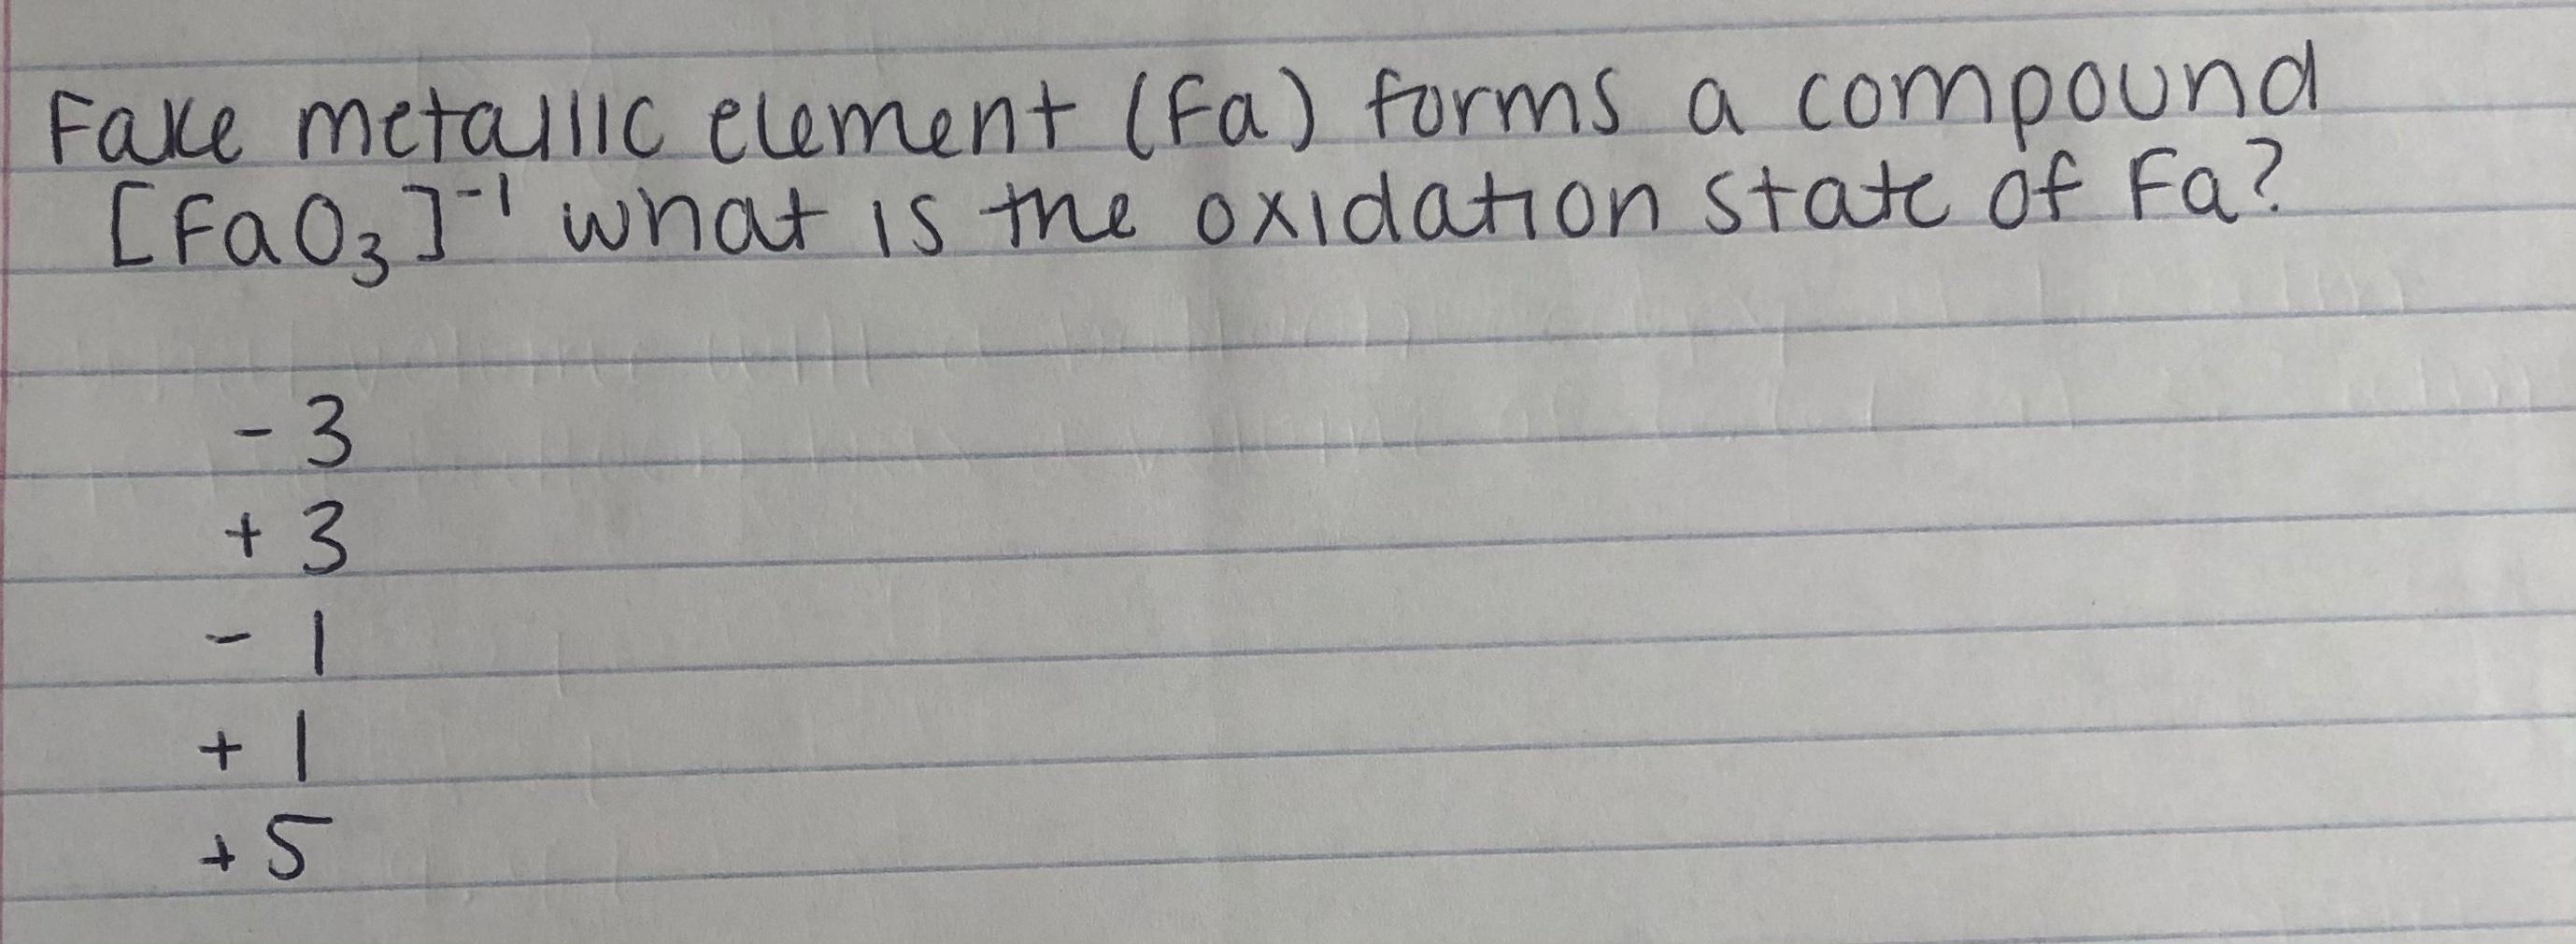 Fake metallic element (Fa) forms a compound
[FaO₃]⁻¹ what is the oxidation state of Fa?
- 3
+ 3
- 1
+ 1
+ 5